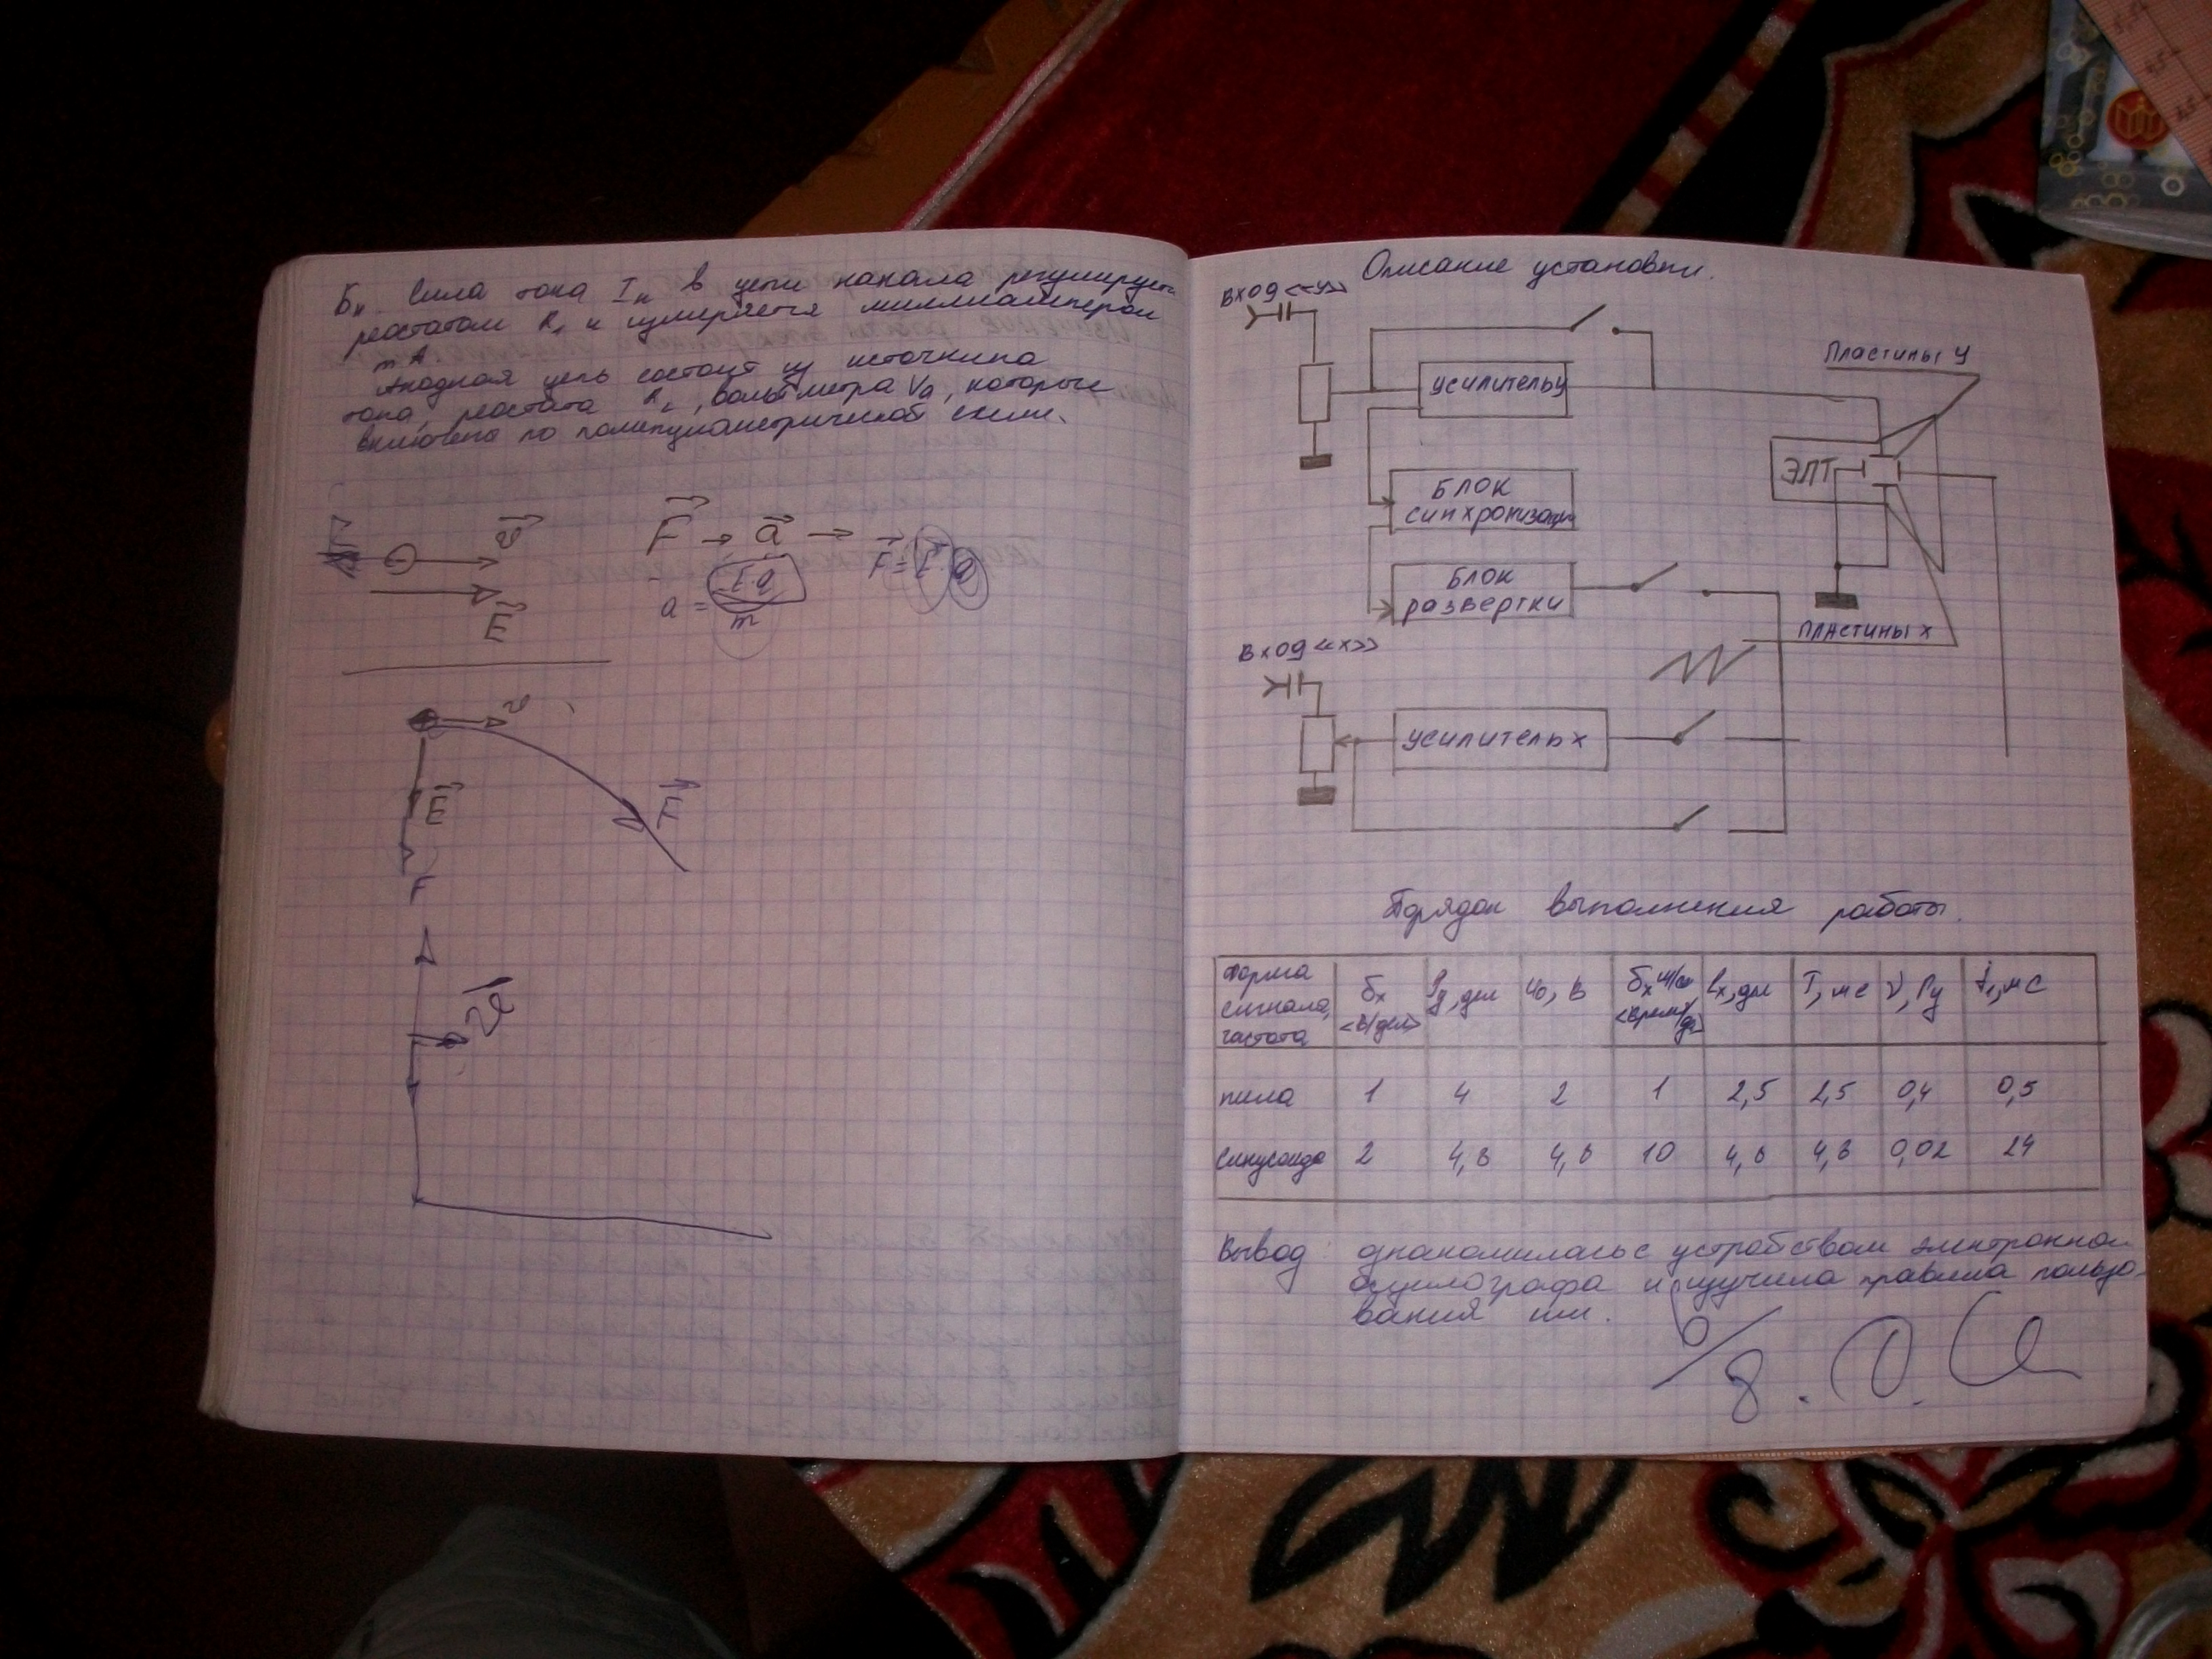 Бн. Сила тока Iн в цепи накала регулирует
реостатом R, и измеряется миллиамперам
mA
Анодная цепь состоит из источника
тока, реостата R2, вольтметра Va, которые
включены по
схеме.
F → a → F = E q
a = E·q / m
v
E
v
E
F
F
Описание установки.
вход <<y>>
Пластины y
усилитель y
ЭЛТ
БЛОК
синхронизации
БЛОК
развертки
Пластины x
Вход <<x>>
усилитель x
Порядок выполнения работы.
Форма сигнала, частота | бx <В/дел> | ly, дел | U0, В | бx | lx, дел | T, мс | ν, Гц | t1, мс
пила | 1 | 4 | 2 | 1 | 2,5 | 2,5 | 0,4 | 0,5
синусоида | 2 | 4,8 | 4,8 | 10 | 4,8 | 4,8 | 0,02 | 24
Вывод: ознакомилась с устройством электронном
осцилографа и изучила правила пользо-
вания им.